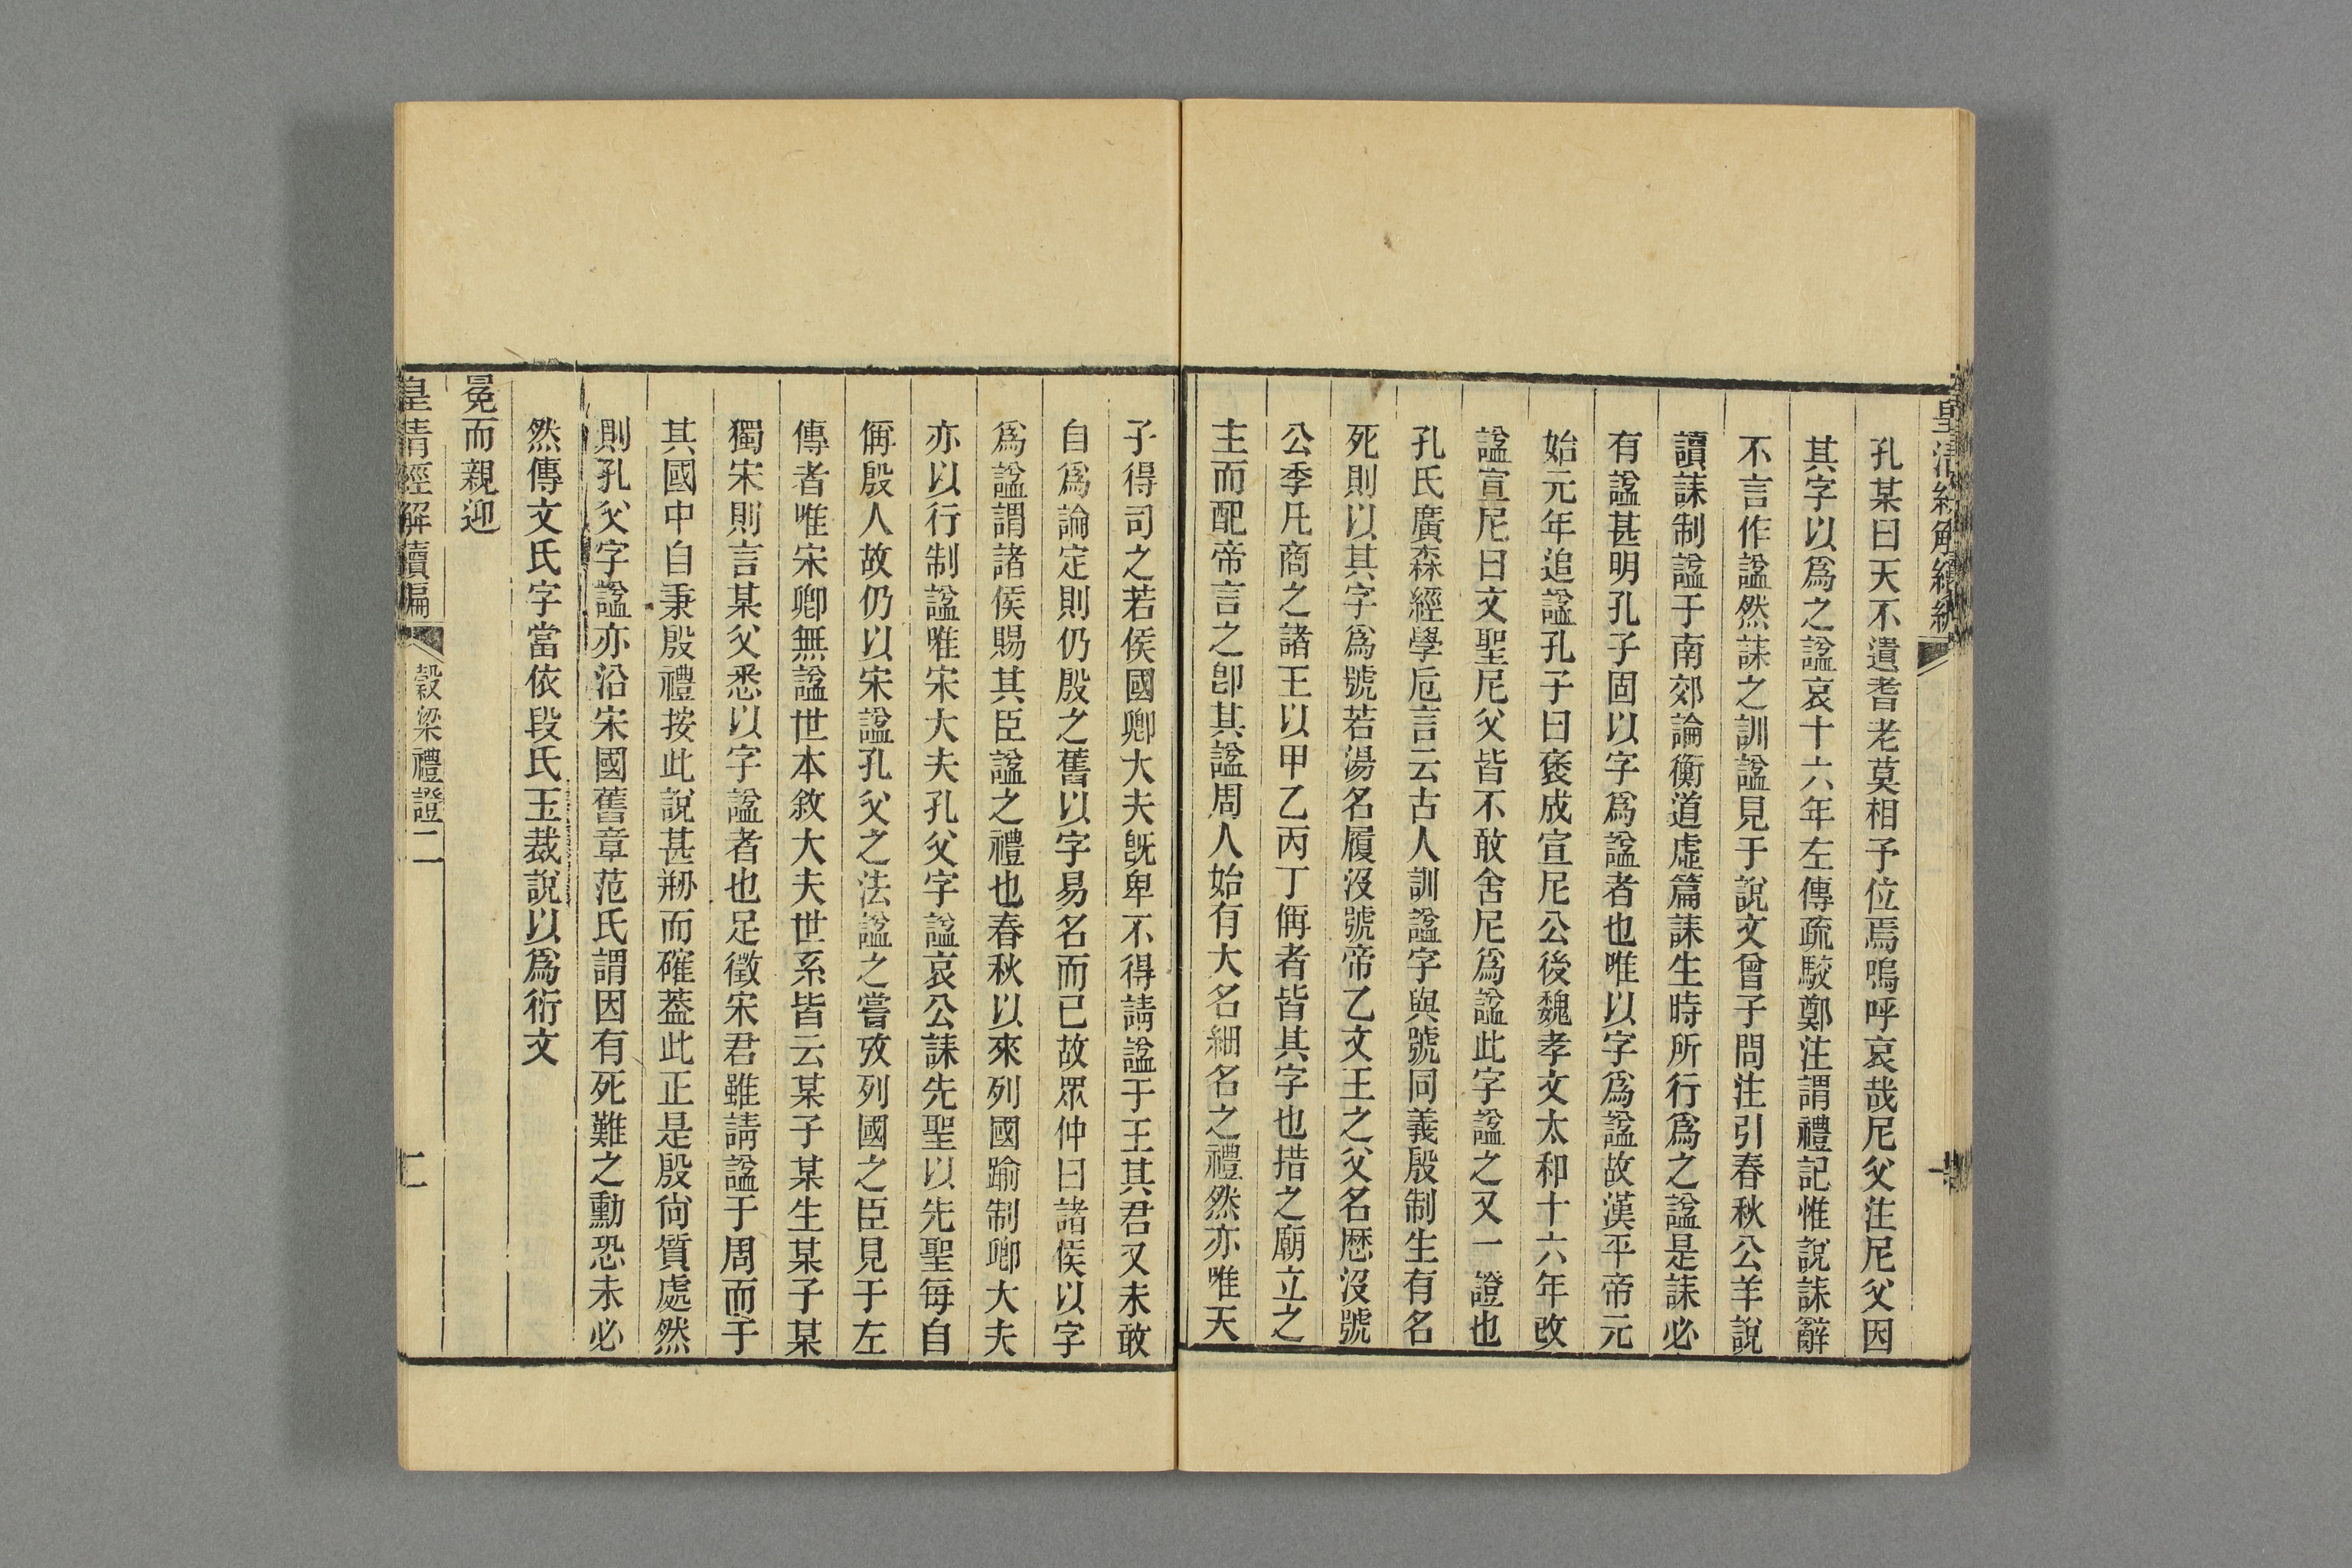 皇清經解續編
孔某曰天不遺耆老莫相予位焉嗚呼哀哉尼父注尼父因
其字以爲之諡哀十六年左傳疏駮鄭注謂禮記惟說誄辭
不言作諡然誄之訓諡見于說文曾子問注引春秋公羊說
讀誄制諡于南郊論衡道虛篇誄生時所行爲之諡是誄必
有諡甚明孔子固以字爲諡者也唯以字爲諡故漢平帝元
始元年追諡孔子曰襃成宣尼公後魏孝文太和十六年改
諡宣尼曰文聖尼父皆不敢舍尼爲諡此字諡之又一證也
孔氏廣森經學卮言云古人訓諡字與號同義殷制生有名
死則以其字爲號若湯名履沒號帝乙文王之父名厯沒號
公季凡商之諸王以甲乙丙丁偁者皆其字也措之廟立之
主而配帝言之卽其諡周人始有大名細名之禮然亦唯天
子得司之若侯國卿大夫旣卑不得請諡于王其君又未敢
自爲論定則仍殷之舊以字易名而已故眾仲曰諸侯以字
爲諡謂諸侯賜其臣諡之禮也春秋以來列國踰制卿大夫
亦以行制諡唯宋大夫孔父字諡哀公誄先聖以先聖每自
偁殷人故仍以宋諡孔父之法諡之嘗攷列國之臣見于左
傳者唯宋卿無諡世本敘大夫世系皆云某子某生某子某
獨宋則言某父悉以字諡者也足徵宋君雖請諡于周而于
其國中自秉殷禮按此說甚刱而確葢此正是殷尙質處然
則孔父字諡亦沿宋國舊章范氏謂因有死難之勳恐未必
然傳文氏字當依段氏玉裁說以爲衍文
冕而親迎
皇清經解續編
穀梁禮證二
二